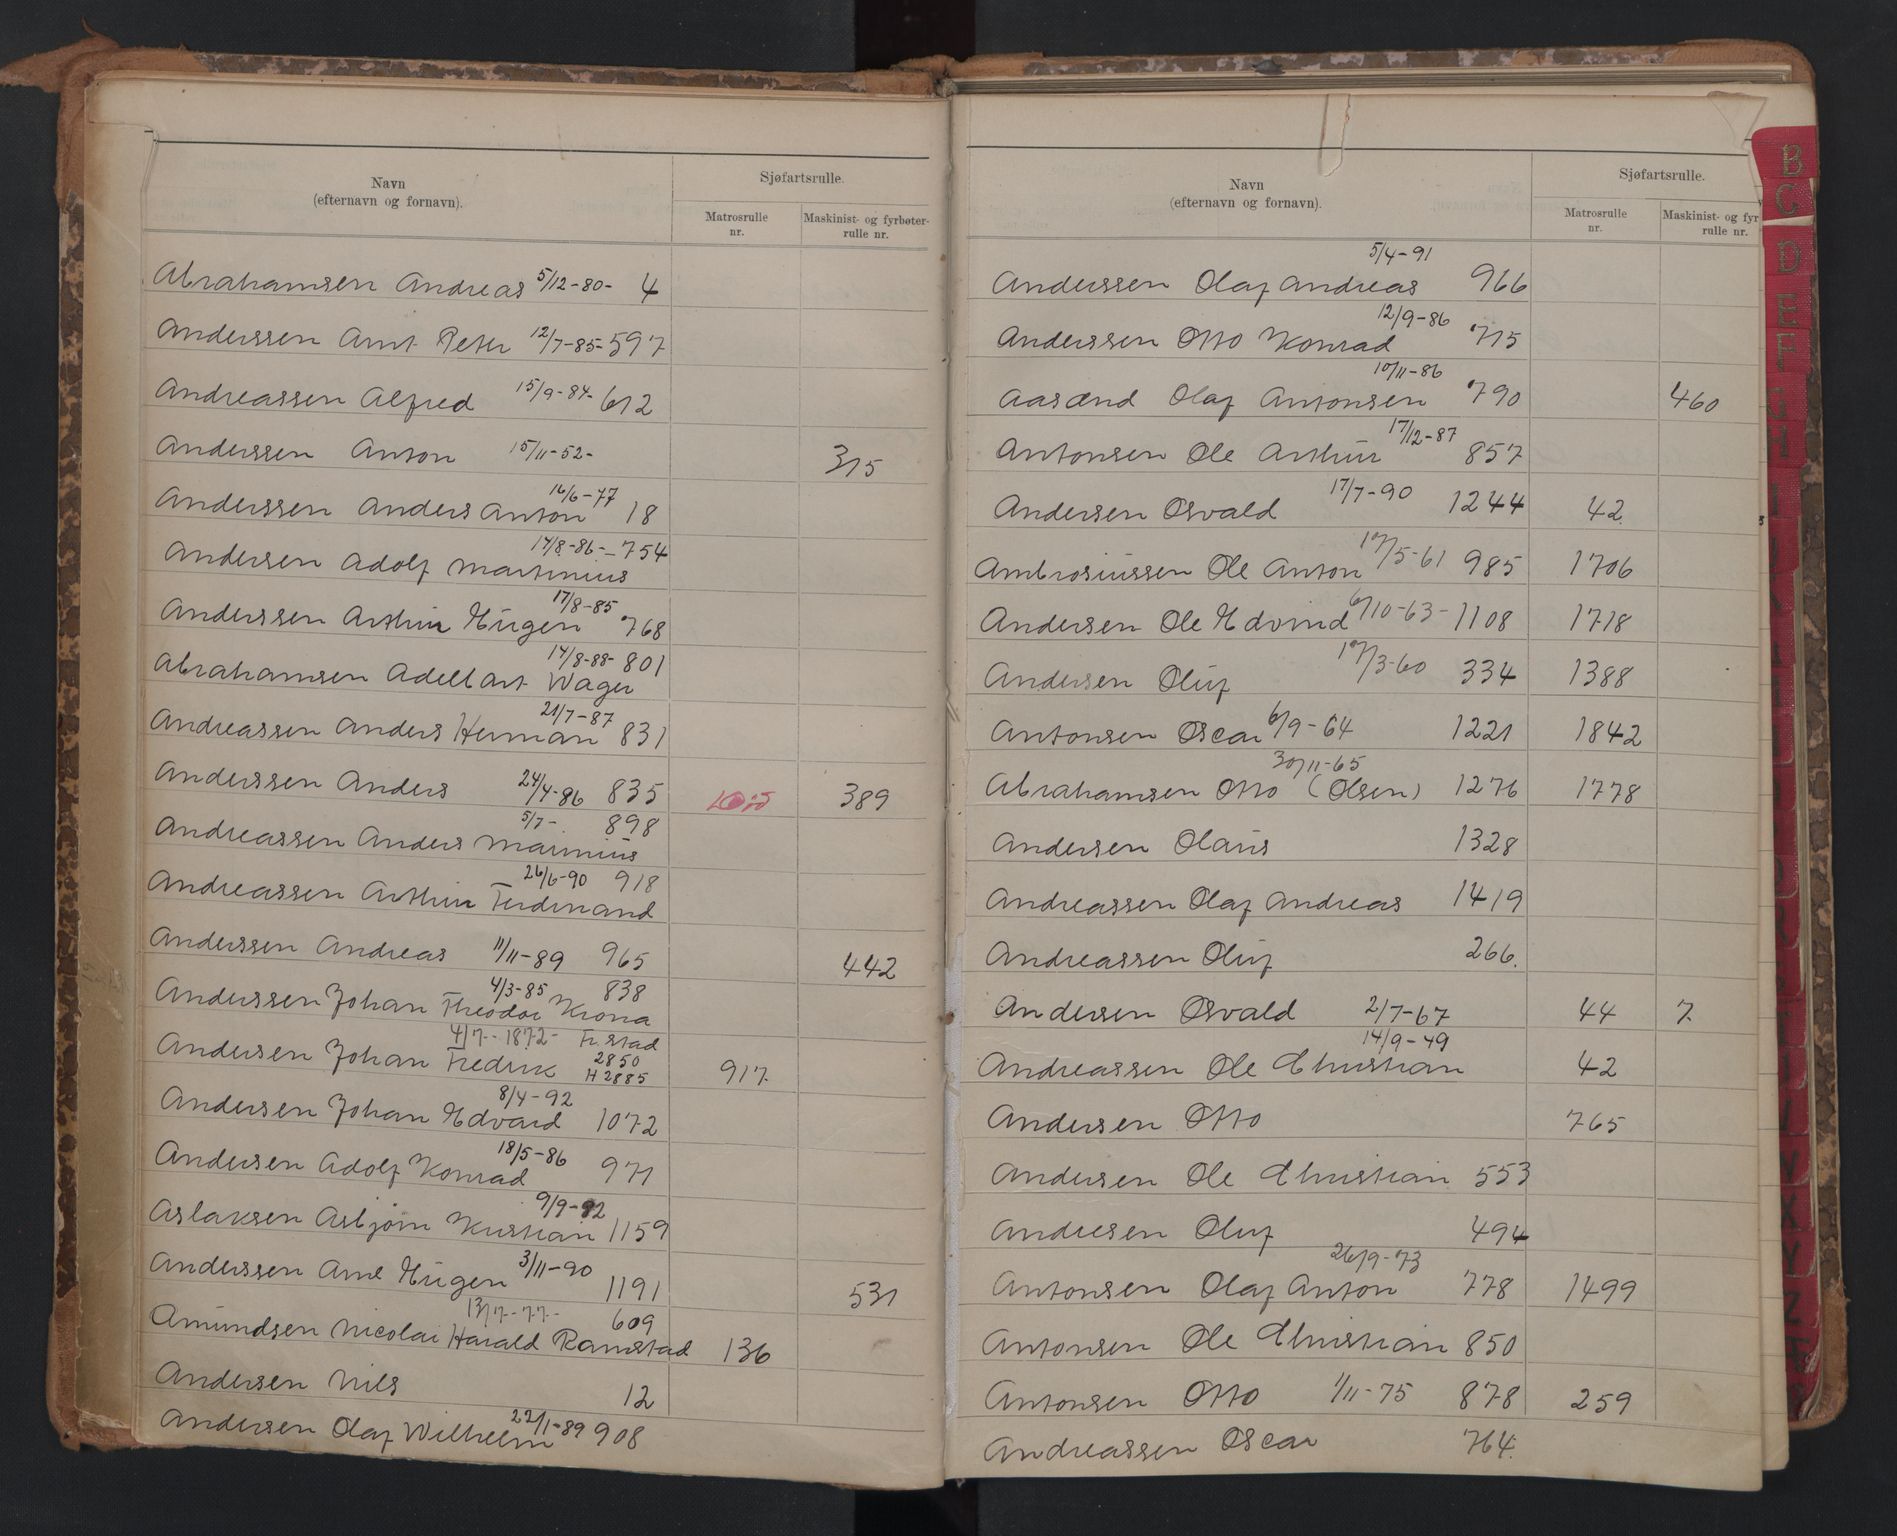 Navn
(efternavn og fornavn).
Sjøfartsrulle.
Matrosrulle
nr.
Maskinist- og fyrbøter-
rulle nr.
Abrahamsen Andreas 5/12-80- 4
Anderssen Arnt Peter 12/7-85- 597
Andreassen Alfred 15/9-84- 612
Anderssen Anton 15/11-52- 315
Anderssen Anders Anton 16/6-77 18
Andersen Adolf Martinius 14/8-86- 754
Anderssen Arthur Eugen 17/8-85 768
Abrahamsen Adelbart Wager 14/8-88- 801
Andreassen Anders Herman 21/7-87 831
Anderssen Anders 24/4-86 835 389
Andreassen Anders Marinius 5/7- 898
Andreassen Arthur Ferdinand 26/6-90 918
Anderssen Andreas 11/11-89 965 442
Anderssen Johan Theodor Krona 4/3-85 838
Andersen Johan Fredrik 4/7-1872- Fr.stad 2850 H 2885 917
Andersen Johan Edvard 8/4-92 1072
Andersen Adolf Konrad 18/5-86 971
Aslaksen Asbjørn Kristian 9/9-92 1159
Anderssen Arne Eugen 3/11-90 1191 531
Amundsen Nicolai Harald Ramstad 13/7-77- 609 136
Andersen Nils 12
Andersen Olaf Wilhelm 22/1-89 908
Navn
(efternavn og fornavn).
Sjøfartsrulle.
Matrosrulle
nr.
Maskinist- og fyr
rulle nr.
Anderssen Olaf Andreas 5/4-91 966
Anderssen Otto Konrad 12/9-86 715
Aasænd Olaf Antonsen 10/11-86 790 460
Antonsen Ole Arthur 17/12-87 857
Andersen Osvald 17/7-90 1244 42
Ambrosiussen Ole Anton 17/5-61 985 1706
Andersen Ole Edvind 6/10-63- 1108 1718
Andersen Oluf 17/3-60 334 1388
Antonsen Oscar 6/9-64 1221 1842
Abrahamsen Otto (Olsen) 30/11-65 1276 1778
Andersen Olaus 1328
Andreassen Olaf Andreas 1419
Andreassen Oluf 266.
Andersen Osvald 2/7-67 44 7.
Andreassen Ole Christian 14/9-49 42
Andersen Otto 765
Andersen Ole Christian 553
Andresen Oluf 494
Antonsen Olaf Anton 26/9-73 778 1499
Antonsen Ole Christian 850
Antonsen Otto 1/11-75 878 259
Andreassen Oscar 764.
B
C
D
E
F